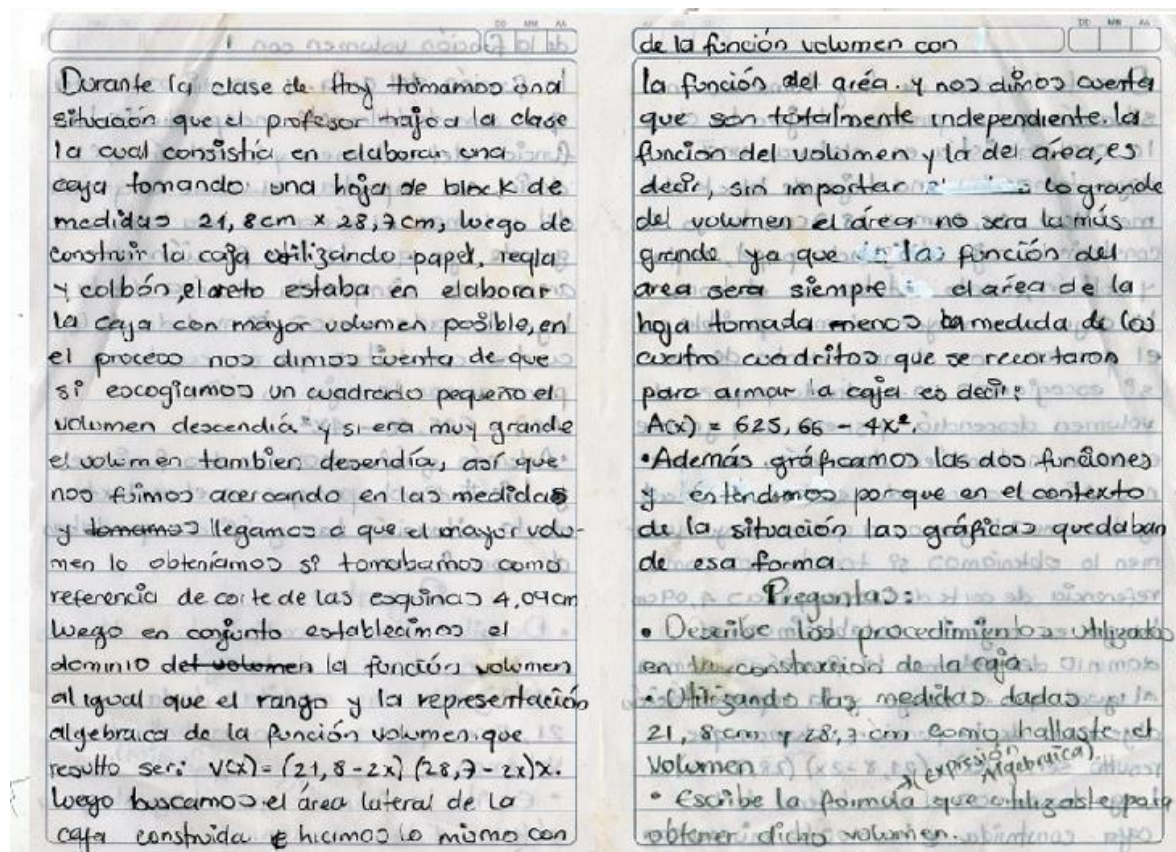 Durante la clase de Hoy tomamos una
situación que el profesor trajo a la clase
la cual consistía en elaborar una
caja tomando una hoja de block de
medidas 21,8cm x 28,7cm, luego de
construir la caja utilizando papel, regla
y colbón, el reto estaba en elaborar
la caja con mayor volumen posible, en
el proceso nos dimos cuenta de que
si escogiamos un cuadrado pequeño el
volumen descendiá y si era muy grande
el volumen tambien desendía, así que
nos fuimos acercando en las medidas
y tomamos llegamos a que el mayor volu-
men lo obteníamos si tomabamos como
referencia de corte de las esquinas 4,09cm
luego en conjunto establecimos el
dominio del volumen la función volumen
al igual que el rango y la representación
algebraica de la función volumen que
resulto ser: V(x)= (21,8-2x) (28,7-2x)x.
luego buscamos el área lateral de la
caja construida e hicimos lo mismo con
DD MM AA
de la función volumen con
la función del area. y nos dimos cuenta
que son totalmente independiente. la
función del volumen y la del área, es
decir, sin importar lo grande
del volumen el área no sera la más
grande ya que la función del
area sera siempre: el área de la
hoja tomada menos la medida de los
cuatro cuadritos que se recortaron
para armar la caja es decir:
A(x) = 625,66 - 4x².
•Además gráficamos las dos funciones
y entendimos porque en el contexto
de la situación las gráficas quedaban
de esa forma.
Preguntas:
• Describe los procedimientos utilizados
en la construcción de la caja
• Utilizando las medidas dadas
21,8 cm y 28,7 cm como hallaste el
volumen
(expresión Algebraica)
• Escribe la formula que utilizaste para
obtener dicho volumen.